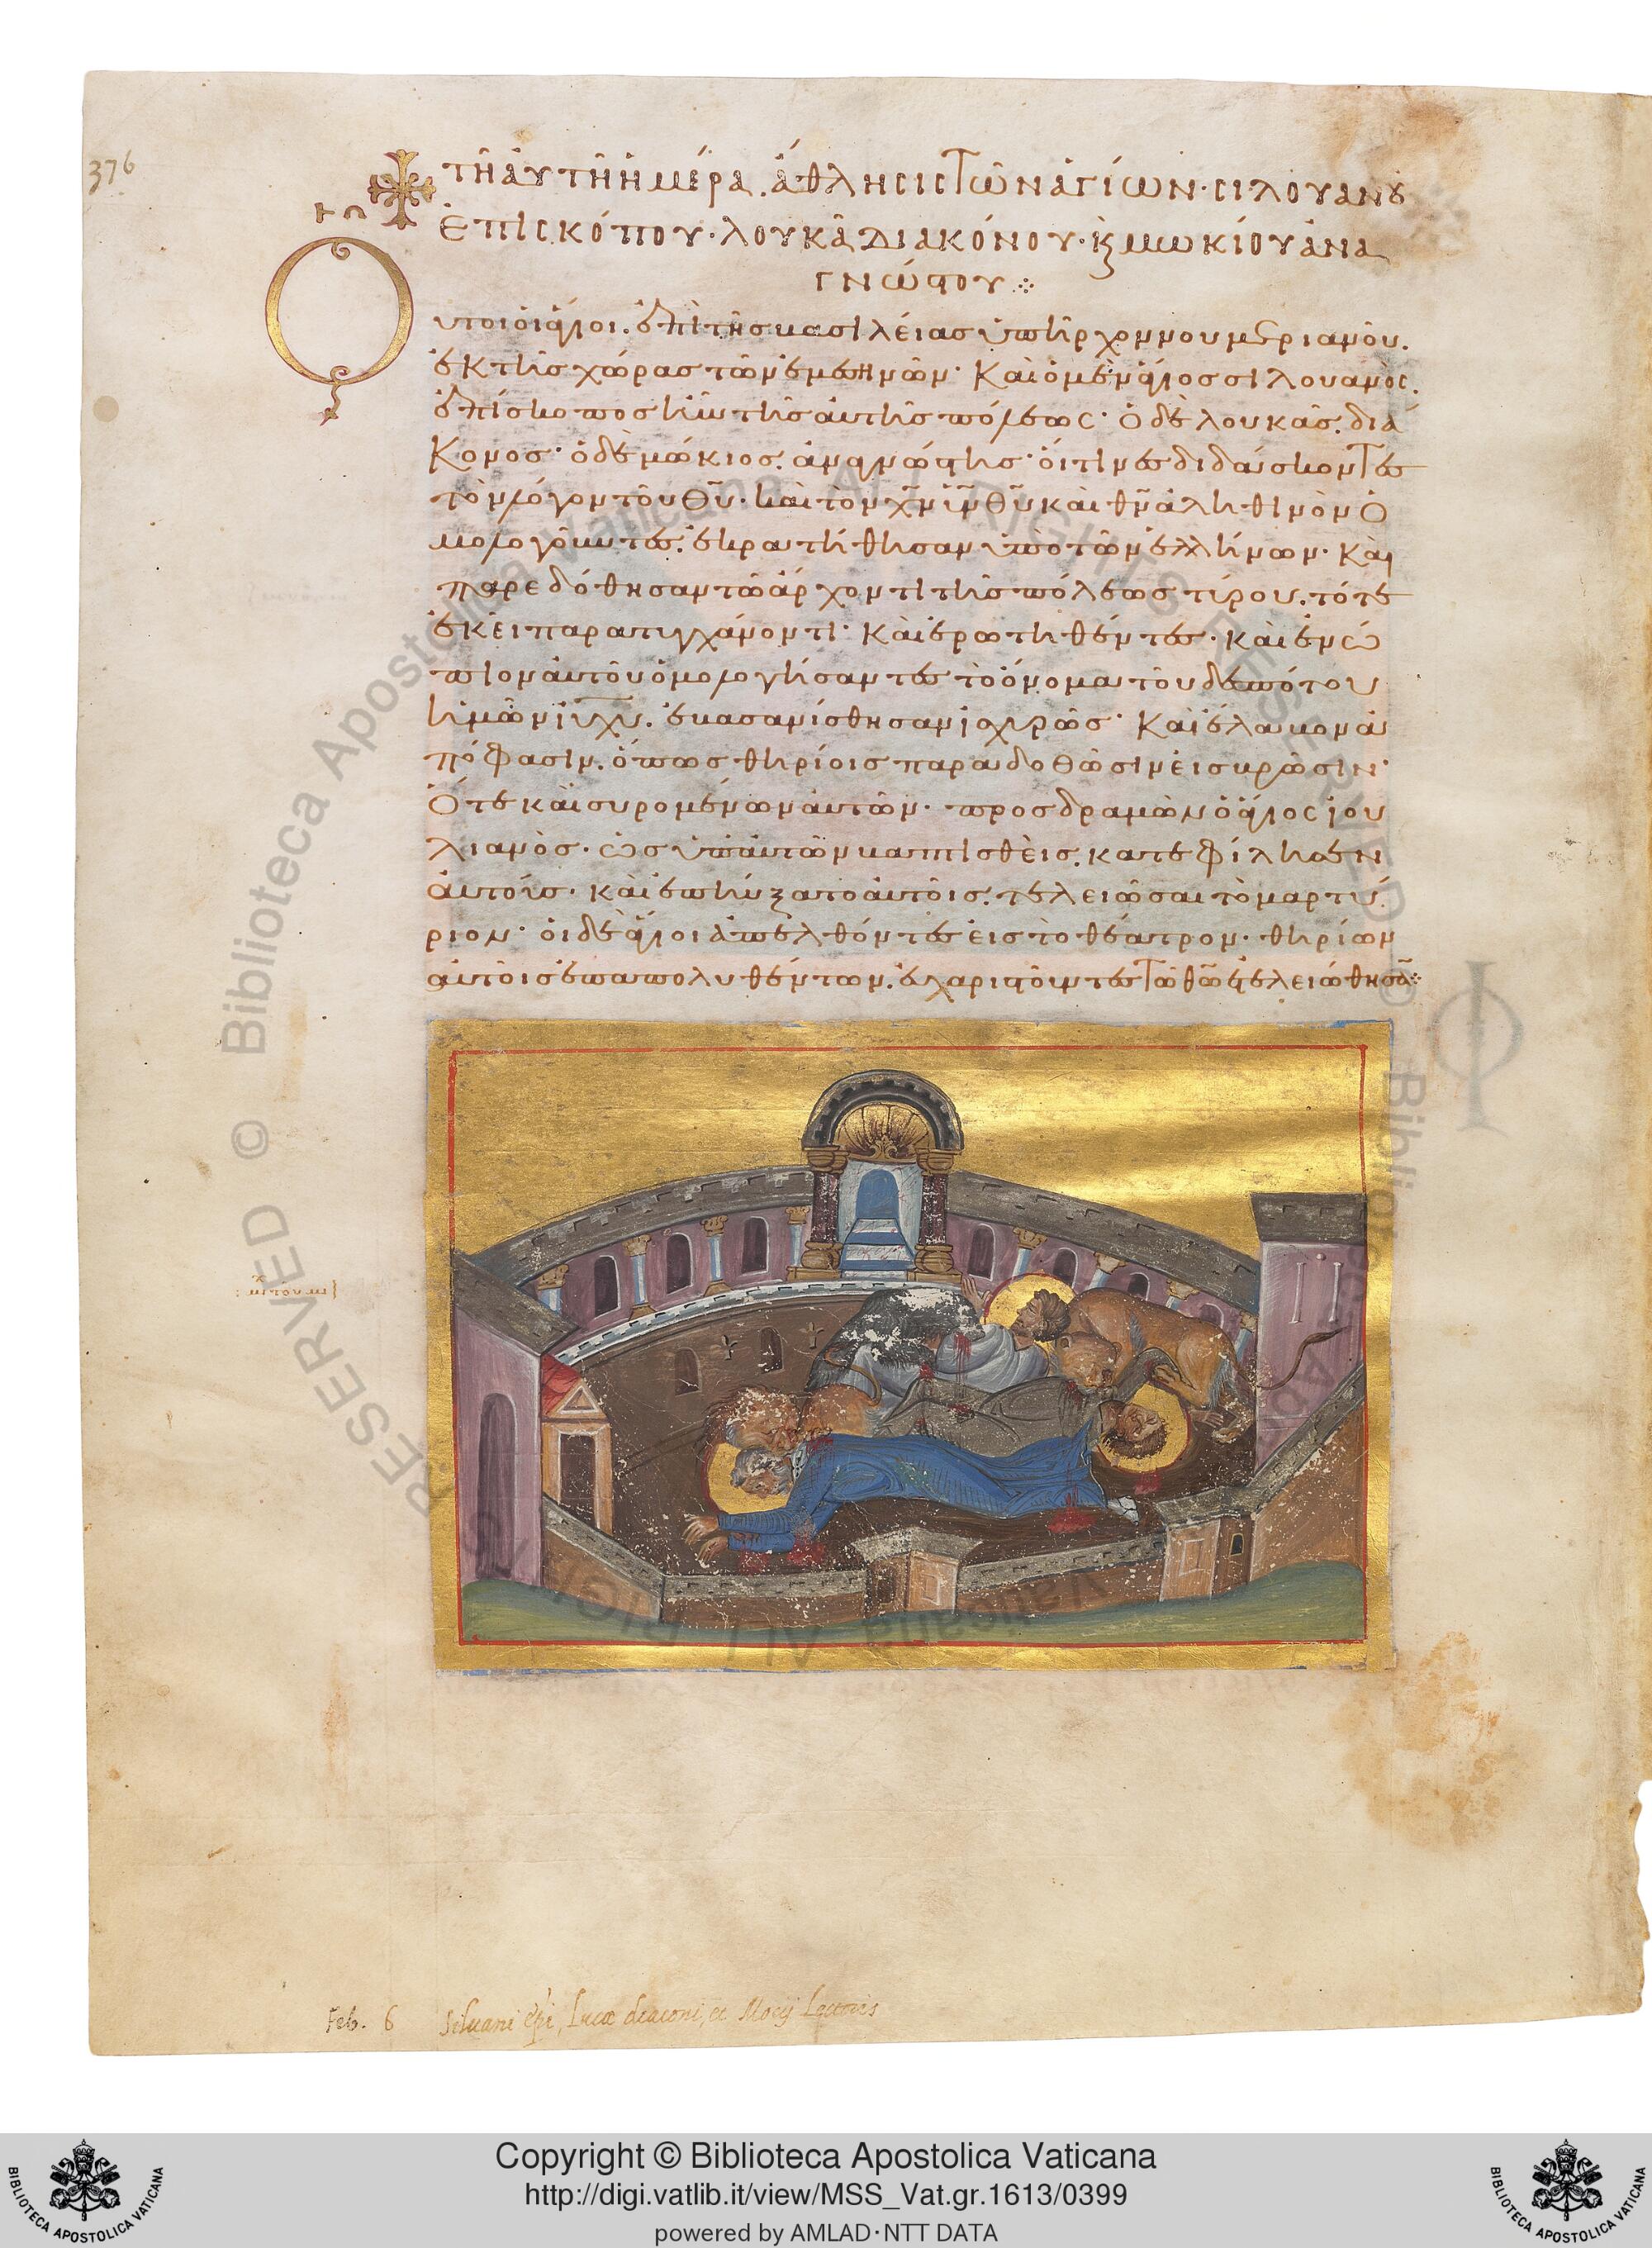 376
τῆ αὐτῆ ἡμέρα. ἄθλησις τῶν ἁγίων· σιλουανοῦ
ἐπισκόπου· λουκᾶ διακόνου· κ μωκίου ἀνα
γνώστου
Οὗτοι οἱ ἅγιοι. ἐπὶ τῆς βασιλείας ὑπῆρχον νουμεριανοῦ.
ἐκ τῆς χώρας τῶν ἐμεσηνῶν· καὶ ὁ μὲν ἅγιος σιλουανὸς.
ἐπίσκοπος ἦν τῆς αὐτῆς πόλεως· ὁ δὲ λουκᾶς. διά
κονος· ὁ δὲ μώκιος. ἀναγνώστης· οἵτινες διδάσκοντες
τὸν λόγον τοῦ θυ· καὶ τὸν χν ιν θν καὶ θν ἀληθινὸν ὁ
μολογοῦντες. ἐκρατήθησαν ὑπὸ τῶν ἑλλήνων· καὶ
παρεδόθησαν τῶ ἄρχοντι τῆς πόλεως τύρου. τότε
ἐκεῖ παρατυγχάνοντι· καὶ ἐρωτηθέντες· καὶ ἐνώ
πιον αὐτοῦ ὁμολογήσαντες τὸ ὄνομα τοῦ δεσπότου
ἡμῶν ιυ χυ. ἐβασανίσθησαν ἰσχυρῶς· καὶ ἔλαβον ἀ
πόφασιν. ὅπως θηρίοις παραδοθῶσιν εἰς βρῶσιν·
ὅτε καὶ συρομένων αὐτῶν· προσδραμὼν ὁ ἅγιος ἰου
λιανὸς· ὡς ὑπ' αὐτῶν βαπτισθεὶς. κατεφίλησεν
αὐτούς· καὶ ἐπηύξατο αὐτοῖς. τελειῶσαι τὸ μαρτύ
ριον· οἱ δὲ ἅγιοι ἀπελθόντες εἰς τὸ θέατρον· θηρίων
αὐτοῖς ἐπαπολυθέντων. εὐχαριστοῦντες τῶ θῶ ἐτελειώθησαν
Feb. 6 Siluani epi, Lucæ diaconi, et Mocij Lectoris
Copyright © Biblioteca Apostolica Vaticana
http://digi.vatlib.it/view/MSS_Vat.gr.1613/0399
powered by AMLAD·NTT DATA